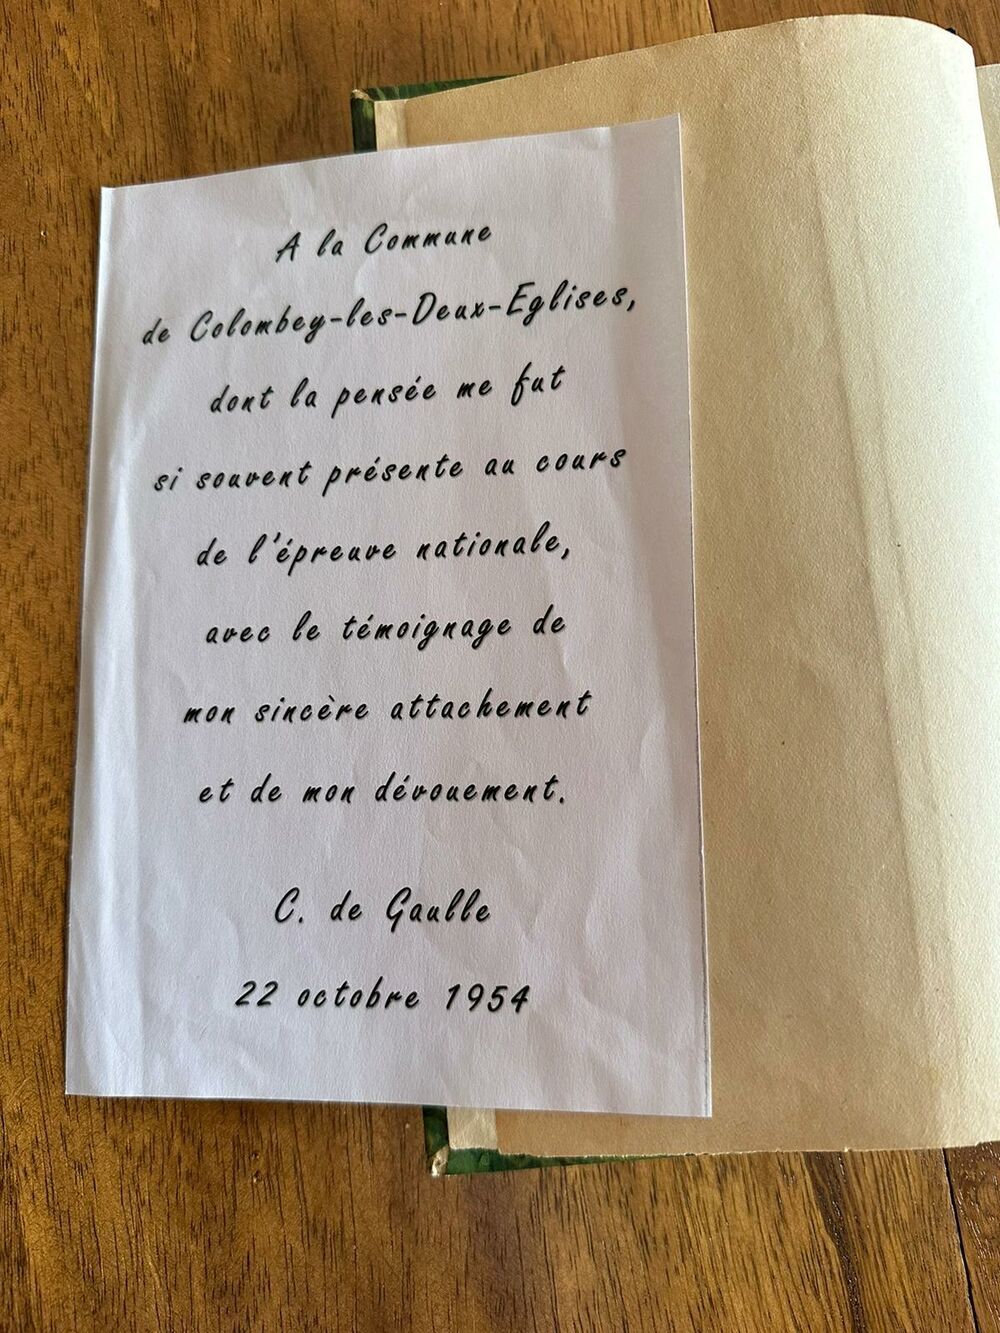 A la Commune
de Colombey-les-Deux-Eglises,
dont la pensée me fut
si souvent présente au cours
de l'épreuve nationale,
avec le témoignage de
mon sincère attachement
et de mon dévouement.
C. de Gaulle
22 octobre 1954